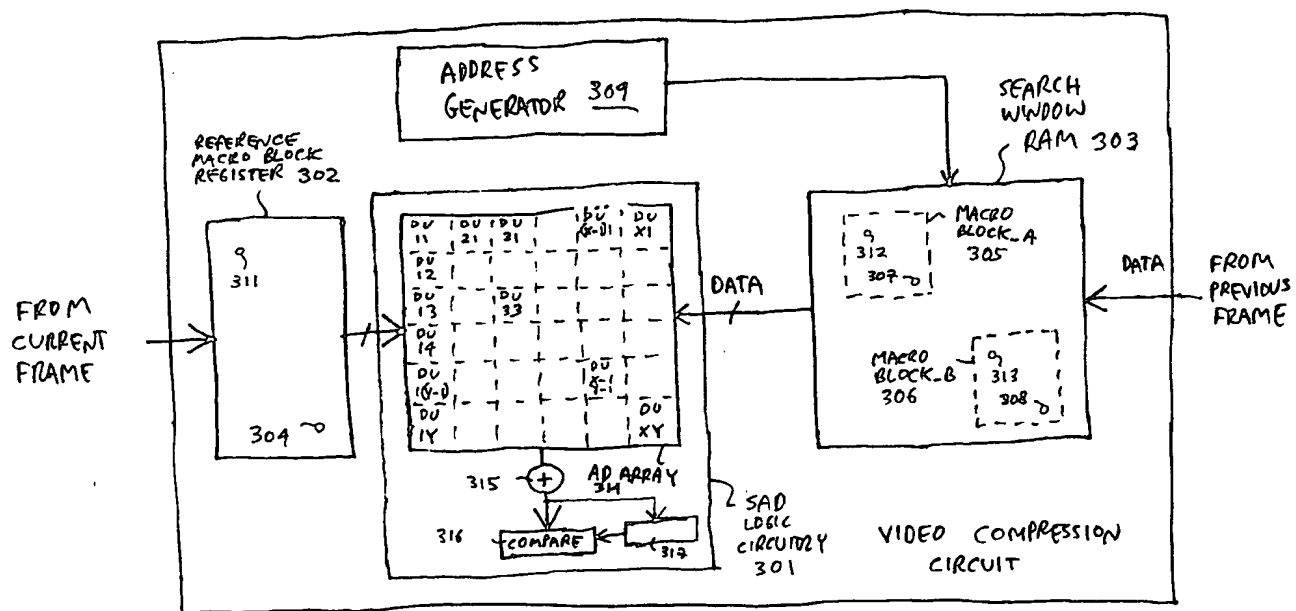 ADDRESS
GENERATOR 309
SEARCH
WINDOW
RAM 303
REFERENCE
MACRO BLOCK
REGISTER 302
311
304
FROM
CURRENT
FRAME
DU
11
DU
21
DU
31
DU
(X-1)1
DU
X1
DU
12
DU
13
DU
33
DU
14
DU
1(Y-1)
DU
1Y
DU
XY
DATA
312
307
MACRO
BLOCK_A
305
MACRO
BLOCK_B
306
313
308
DATA
FROM
PREVIOUS
FRAME
315
+
AD ARRAY
314
316
COMPARE
317
SAD
LOGIC
CIRCUITRY
301
VIDEO COMPRESSION
CIRCUIT